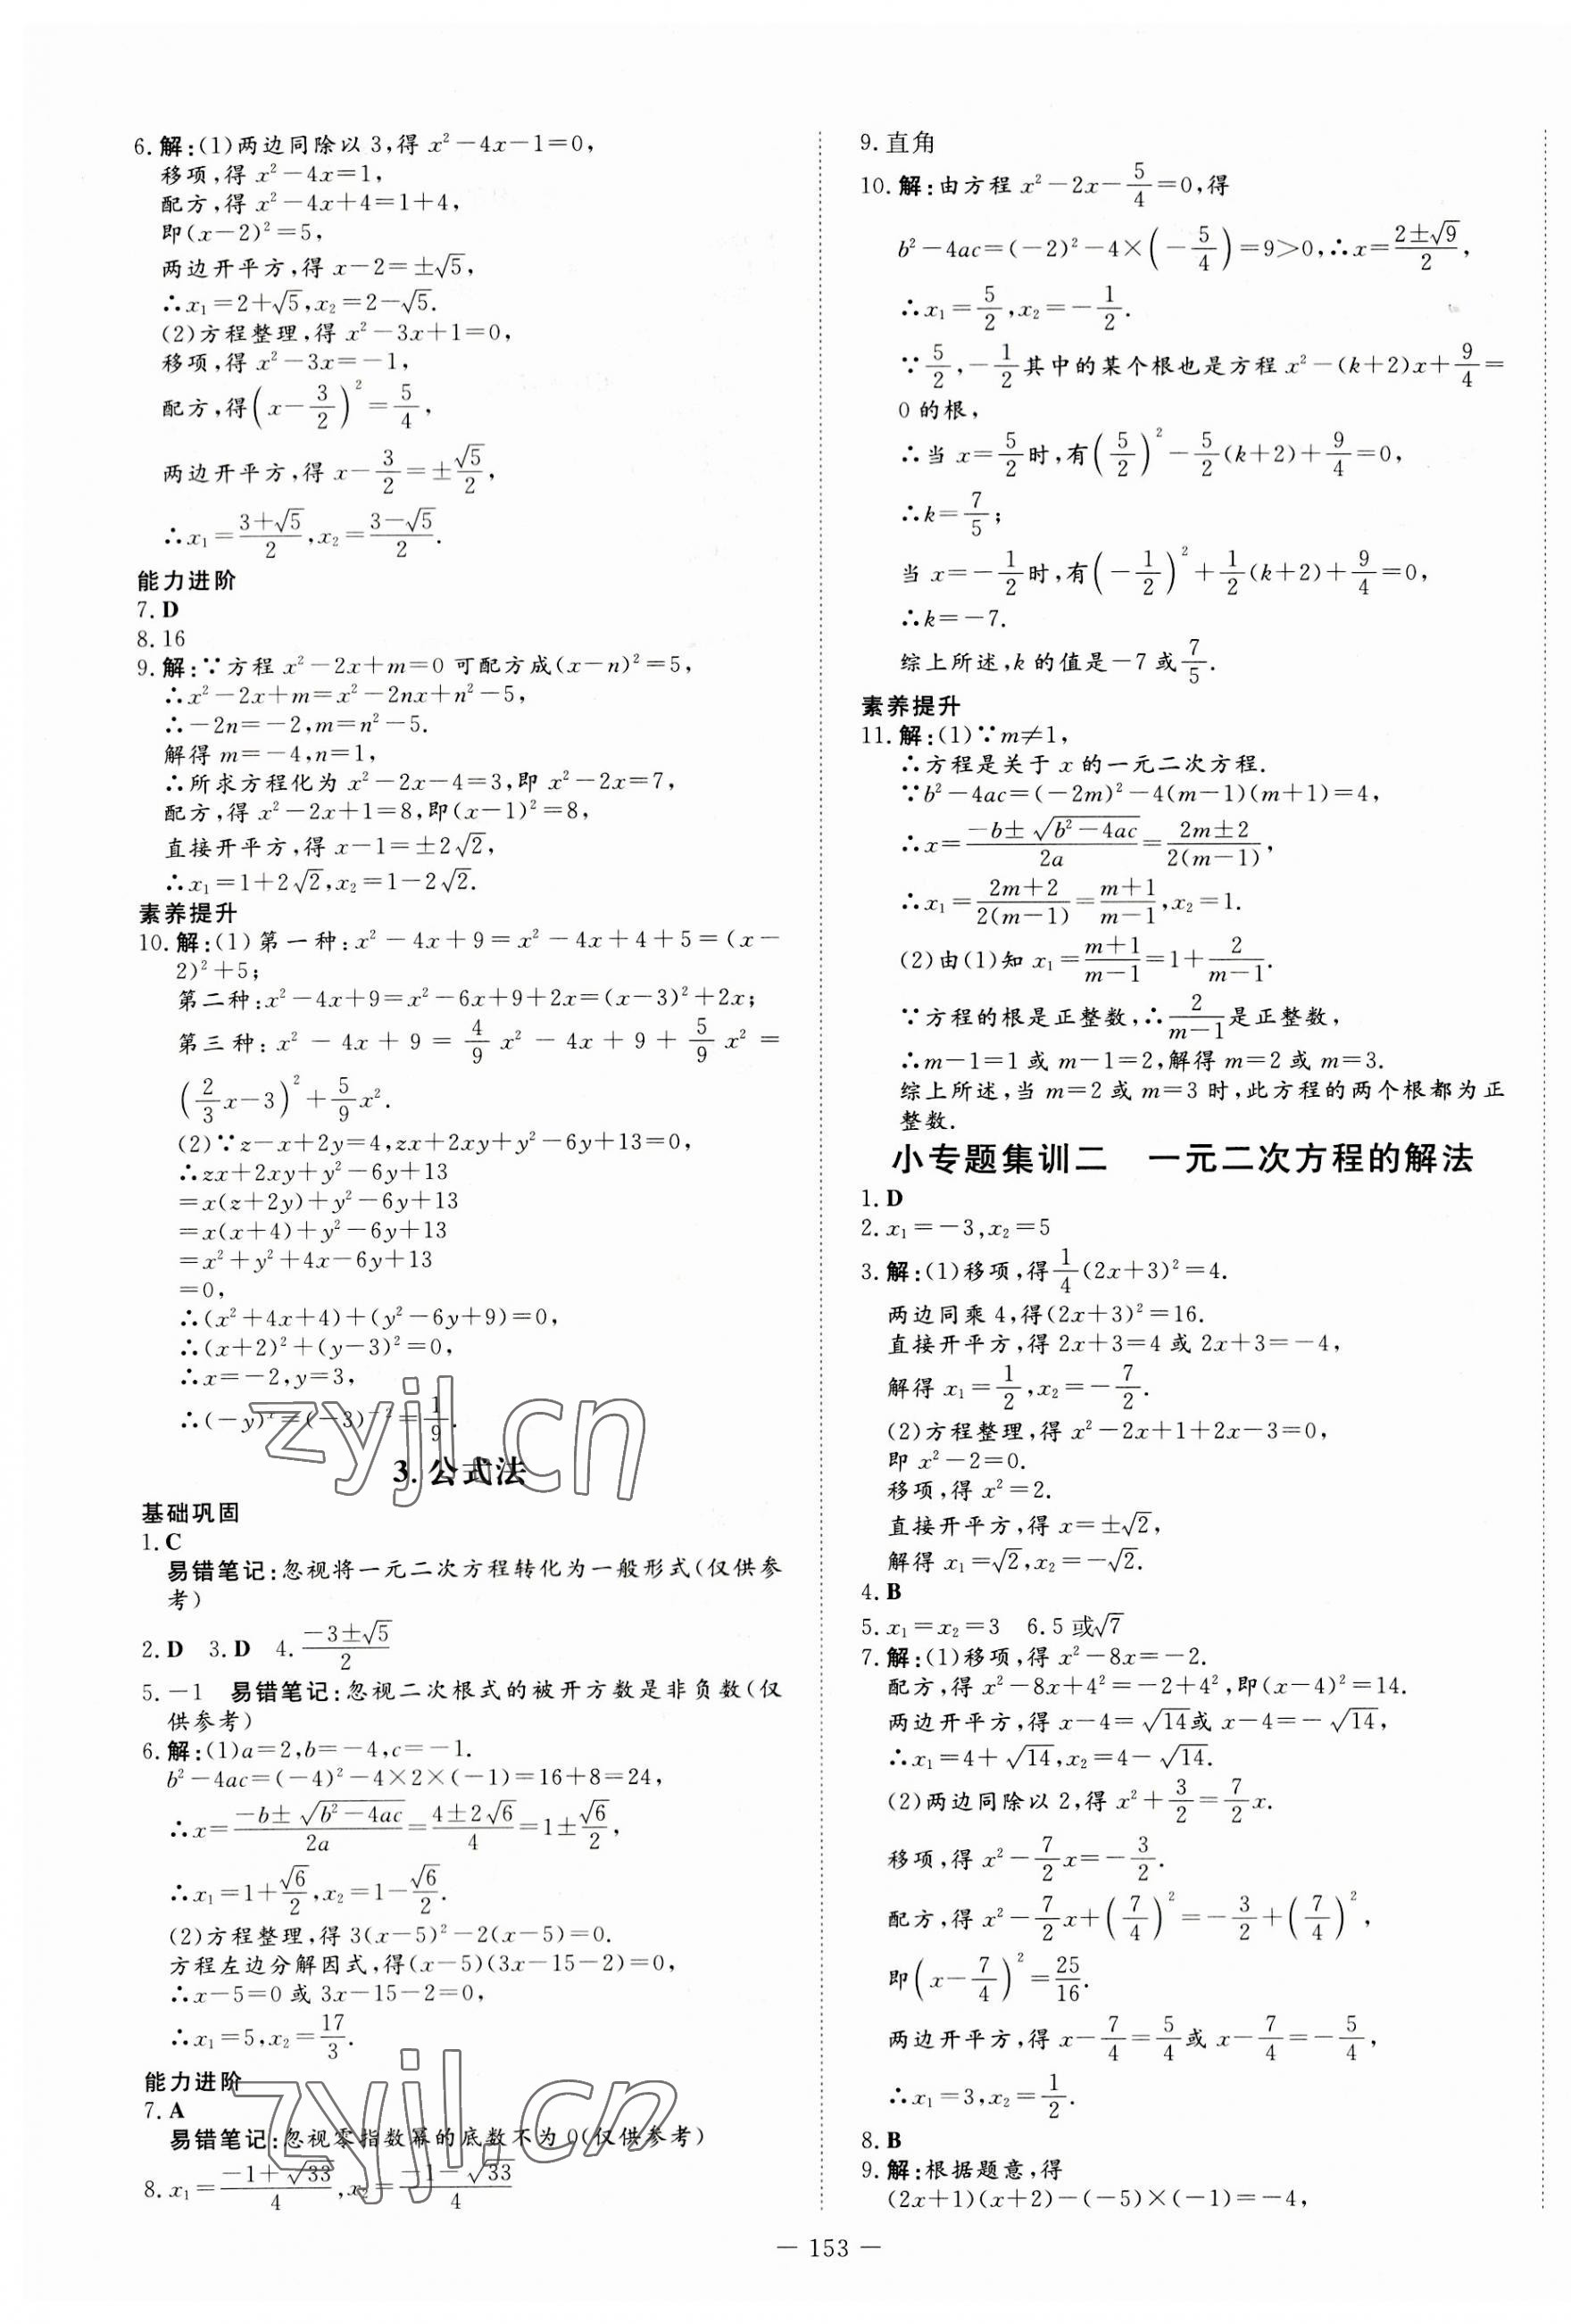 6.解:(1)两边同除以 3,得 x²-4x-1=0,
移项,得 x²-4x=1,
配方,得 x²-4x+4=1+4,
即(x-2)²=5,
两边开平方,得 x-2=±√5,
∴x₁=2+√5,x₂=2-√5.
(2)方程整理,得 x²-3x+1=0,
移项,得 x²-3x=-1,
配方,得(x-3/2)²=5/4,
两边开平方,得 x-3/2=±√5/2,
∴x₁=(3+√5)/2,x₂=(3-√5)/2.
能力进阶
7.D
8.16
9.解:∵方程 x²-2x+m=0 可配方成(x-n)²=5,
∴x²-2x+m=x²-2nx+n²-5,
∴-2n=-2,m=n²-5.
解得 m=-4,n=1,
∴所求方程化为 x²-2x-4=3,即 x²-2x=7,
配方,得 x²-2x+1=8,即(x-1)²=8,
直接开平方,得 x-1=±2√2,
∴x₁=1+2√2,x₂=1-2√2.
素养提升
10.解:(1)第一种:x²-4x+9=x²-4x+4+5=(x-
2)²+5;
第二种:x²-4x+9=x²-6x+9+2x=(x-3)²+2x;
第三种:x²-4x+9=4/9x²-4x+9+5/9x²=
(2/3x-3)²+5/9x².
(2)∵z-x+2y=4,zx+2xy+y²-6y+13=0,
∴zx+2xy+y²-6y+13
=x(z+2y)+y²-6y+13
=x(x+4)+y²-6y+13
=x²+y²+4x-6y+13
=0,
∴(x²+4x+4)+(y²-6y+9)=0,
∴(x+2)²+(y-3)²=0,
∴x=-2,y=3,
∴(-y)ˣ=(-3)⁻²=1/9.
3.公式法
基础巩固
1.C
易错笔记:忽视将一元二次方程转化为一般形式(仅供参
考)
2.D 3.D 4.(-3±√5)/2
5.-1 易错笔记:忽视二次根式的被开方数是非负数(仅
供参考)
6.解:(1)a=2,b=-4,c=-1.
b²-4ac=(-4)²-4×2×(-1)=16+8=24,
∴x=(-b±√(b²-4ac))/2a=(4±2√6)/4=1±√6/2,
∴x₁=1+√6/2,x₂=1-√6/2.
(2)方程整理,得 3(x-5)²-2(x-5)=0.
方程左边分解因式,得(x-5)(3x-15-2)=0,
∴x-5=0 或 3x-15-2=0,
∴x₁=5,x₂=17/3.
能力进阶
7.A
易错笔记:忽视零指数幂的底数不为 0(仅供参考)
8.x₁=(-1+√33)/4,x₂=(-1-√33)/4
9.直角
10.解:由方程 x²-2x-5/4=0,得
b²-4ac=(-2)²-4×(-5/4)=9>0,∴x=(2±√9)/2,
∴x₁=5/2,x₂=-1/2.
∵5/2,-1/2其中的某个根也是方程 x²-(k+2)x+9/4=
0 的根,
∴当 x=5/2时,有(5/2)²-5/2(k+2)+9/4=0,
∴k=7/5;
当 x=-1/2时,有(-1/2)²+1/2(k+2)+9/4=0,
∴k=-7.
综上所述,k 的值是-7 或7/5.
素养提升
11.解:(1)∵m≠1,
∴方程是关于 x 的一元二次方程.
∵b²-4ac=(-2m)²-4(m-1)(m+1)=4,
∴x=(-b±√(b²-4ac))/2a=(2m±2)/2(m-1),
∴x₁=(2m+2)/2(m-1)=(m+1)/(m-1),x₂=1.
(2)由(1)知 x₁=(m+1)/(m-1)=1+2/(m-1).
∵方程的根是正整数,∴2/(m-1)是正整数,
∴m-1=1 或 m-1=2,解得 m=2 或 m=3.
综上所述,当 m=2 或 m=3 时,此方程的两个根都为正
整数.
小专题集训二 一元二次方程的解法
1.D
2.x₁=-3,x₂=5
3.解:(1)移项,得1/4(2x+3)²=4.
两边同乘 4,得(2x+3)²=16.
直接开平方,得 2x+3=4 或 2x+3=-4,
解得 x₁=1/2,x₂=-7/2.
(2)方程整理,得 x²-2x+1+2x-3=0,
即 x²-2=0.
移项,得 x²=2.
直接开平方,得 x=±√2,
解得 x₁=√2,x₂=-√2.
4.B
5.x₁=x₂=3 6.5 或√7
7.解:(1)移项,得 x²-8x=-2.
配方,得 x²-8x+4²=-2+4²,即(x-4)²=14.
两边开平方,得 x-4=√14或 x-4=-√14,
∴x₁=4+√14,x₂=4-√14.
(2)两边同除以 2,得 x²+3/2=7/2x.
移项,得 x²-7/2x=-3/2.
配方,得 x²-7/2x+(7/4)²=-3/2+(7/4)²,
即(x-7/4)²=25/16.
两边开平方,得 x-7/4=5/4或 x-7/4=-5/4,
∴x₁=3,x₂=1/2.
8.B
9.解:根据题意,得
(2x+1)(x+2)-(-5)×(-1)=-4,
— 153 —
zyjl.cn
zyjl.cn